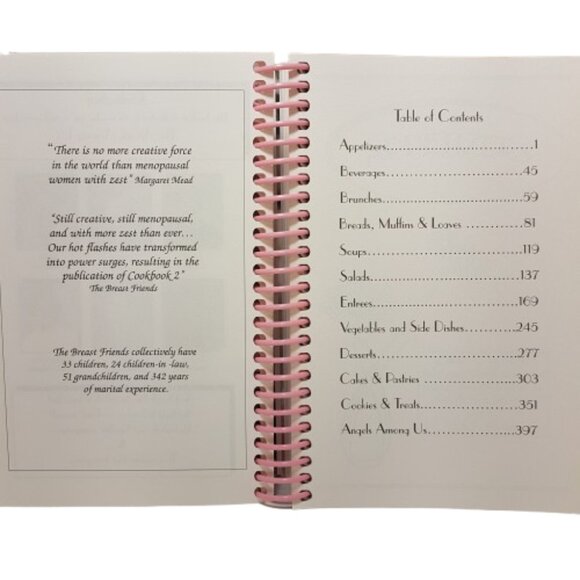 "There is no more creative force
in the world than menopausal
women with zest" Margaret Mead
"Still creative, still menopausal,
and with more zest than ever...
Our hot flashes have transformed
into power surges, resulting in the
publication of Cookbook 2"
The Breast Friends
The Breast Friends collectively have
33 children, 24 children-in -law,
51 grandchildren, and 342 years
of marital experience.
Table of Contents
Appetizers..............................1
Beverages..............................45
Brunches..............................59
Breads, Muffins & Loaves ..............81
Soups..............................119
Salads..............................137
Entrees..............................169
Vegetables and Side Dishes...........245
Desserts..............................277
Cakes & Pastries ....................303
Cookies & Treats....................351
Angels Among Us....................397